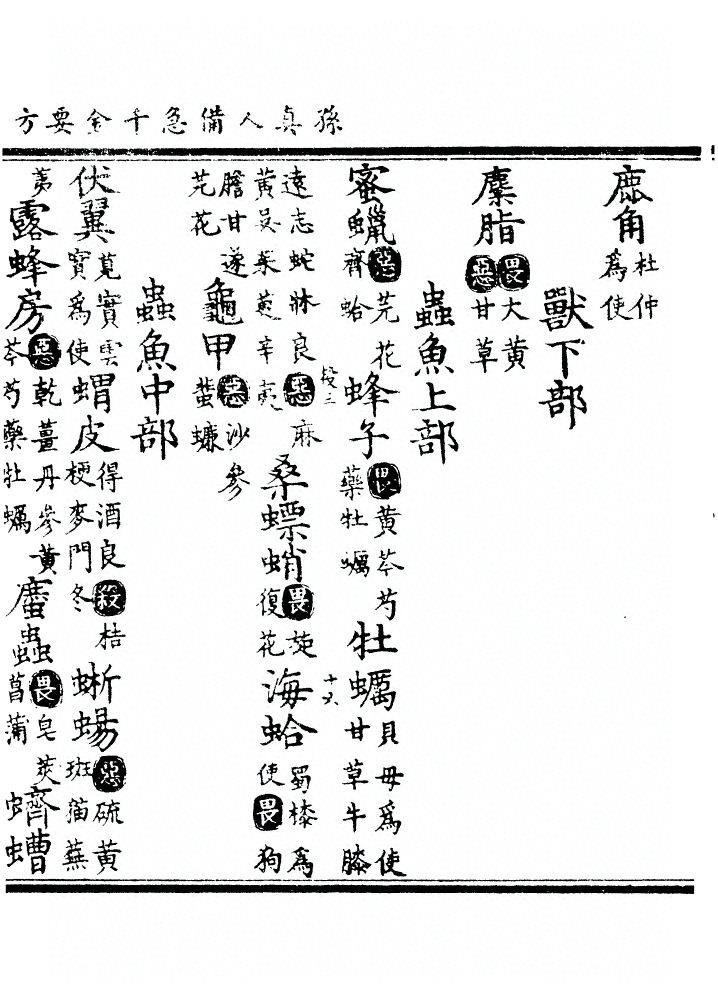 孫真人備急千金要方
鹿角杜仲為使
獸下部
麋脂畏大黃惡甘草
蟲魚上部
蜜蠟惡芫花齊蛤蜂子畏黃芩芍藥牡蠣牡蠣貝母為使甘草牛膝
段三 十六
遠志蛇牀良惡麻黃吳茱萸辛夷桑螵蛸畏旋復花海蛤蜀㯃為使畏狗
膽甘遂芫花龜甲惡沙參蜚蠊
蟲魚中部
伏翼莧實雲實為使蝟皮得酒良殺桔梗麥門冬蜥蜴惡硫黃班猫蕪
荑露蜂房惡乾薑丹參黃芩芍藥牡蠣䗪蟲畏皂莢菖蒲蠐螬